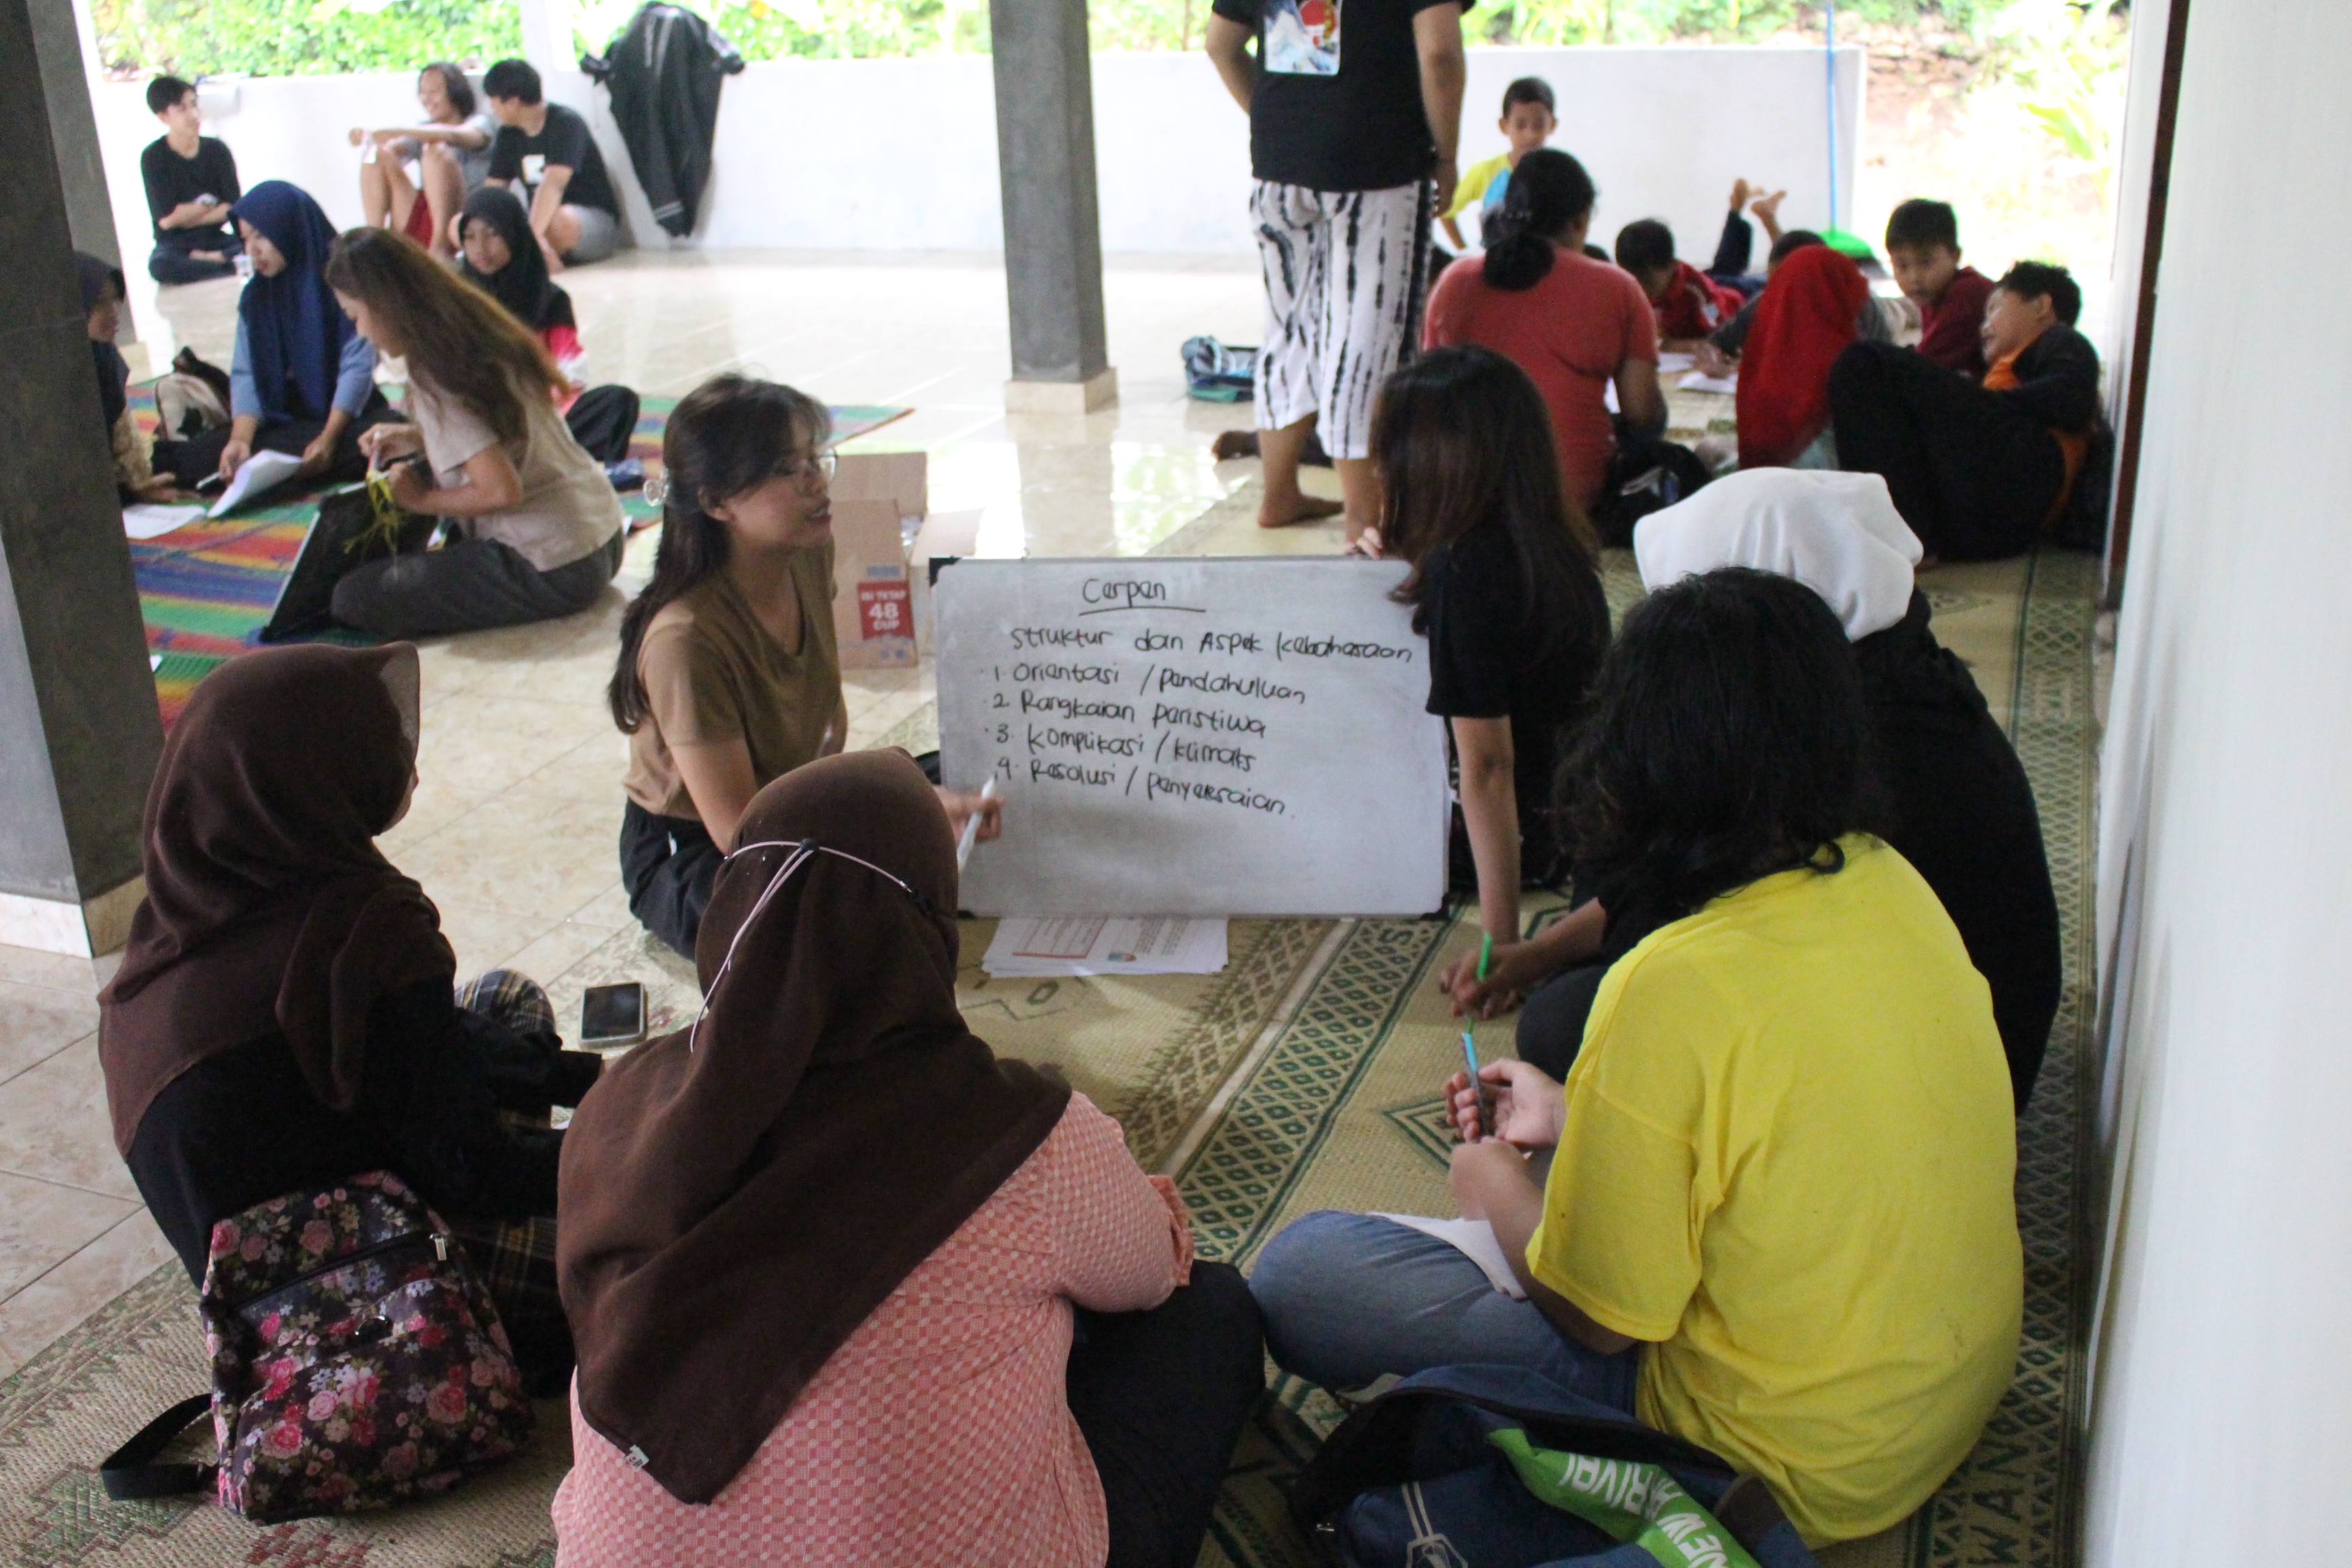 Cerpen
Struktur dan Aspek kebahasaan
1. Orientasi / pendahuluan
2. Rangkaian peristiwa
3. Komplikasi / klimaks
4. Resolusi / penyelesaian.
ISI TETAP
48
CUP
NEW ARRIVAL